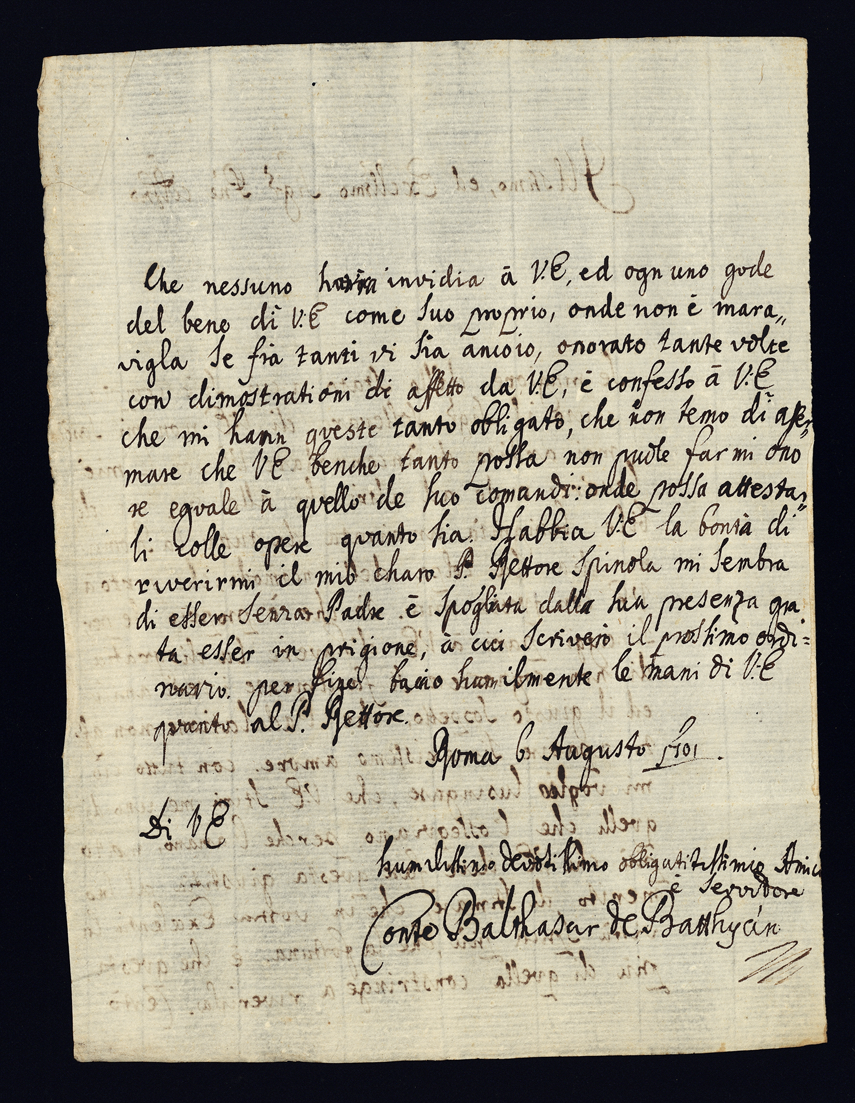 Che nessuno havria invidia â V.E, ed ogn uno gode
del bene di V.E come suo proprio, onde non è mara„
vigla se fra tanti vi sia ancoio, onorato tante volte
con dimostrationi di affetto da V.E, è confesso â V.E
che mi hann queste tanto obligato, che non temo di affer„
mare che VE benche tanto possa non puole farmi ono
re eguale â quello de suo comandi: onde possa attesta„
li colle opere quanto sia. Habbia VE la bontà di
riverirmi il mio charo P. Rettore Spinola mi sembra
di esser senza Padre è spogliata dalla sua presenza gra
ta esser in prigione, â cui scriverò il prossimo ordi=
nario. per fine bacio humilmente le mani di V.E
al P. Rettore.
Roma 6 Augusto 1701.
Di VE
humilissimo devotissimo obbligatitissimio Amic
è Servidore
Conte Balthasar de Batthyán